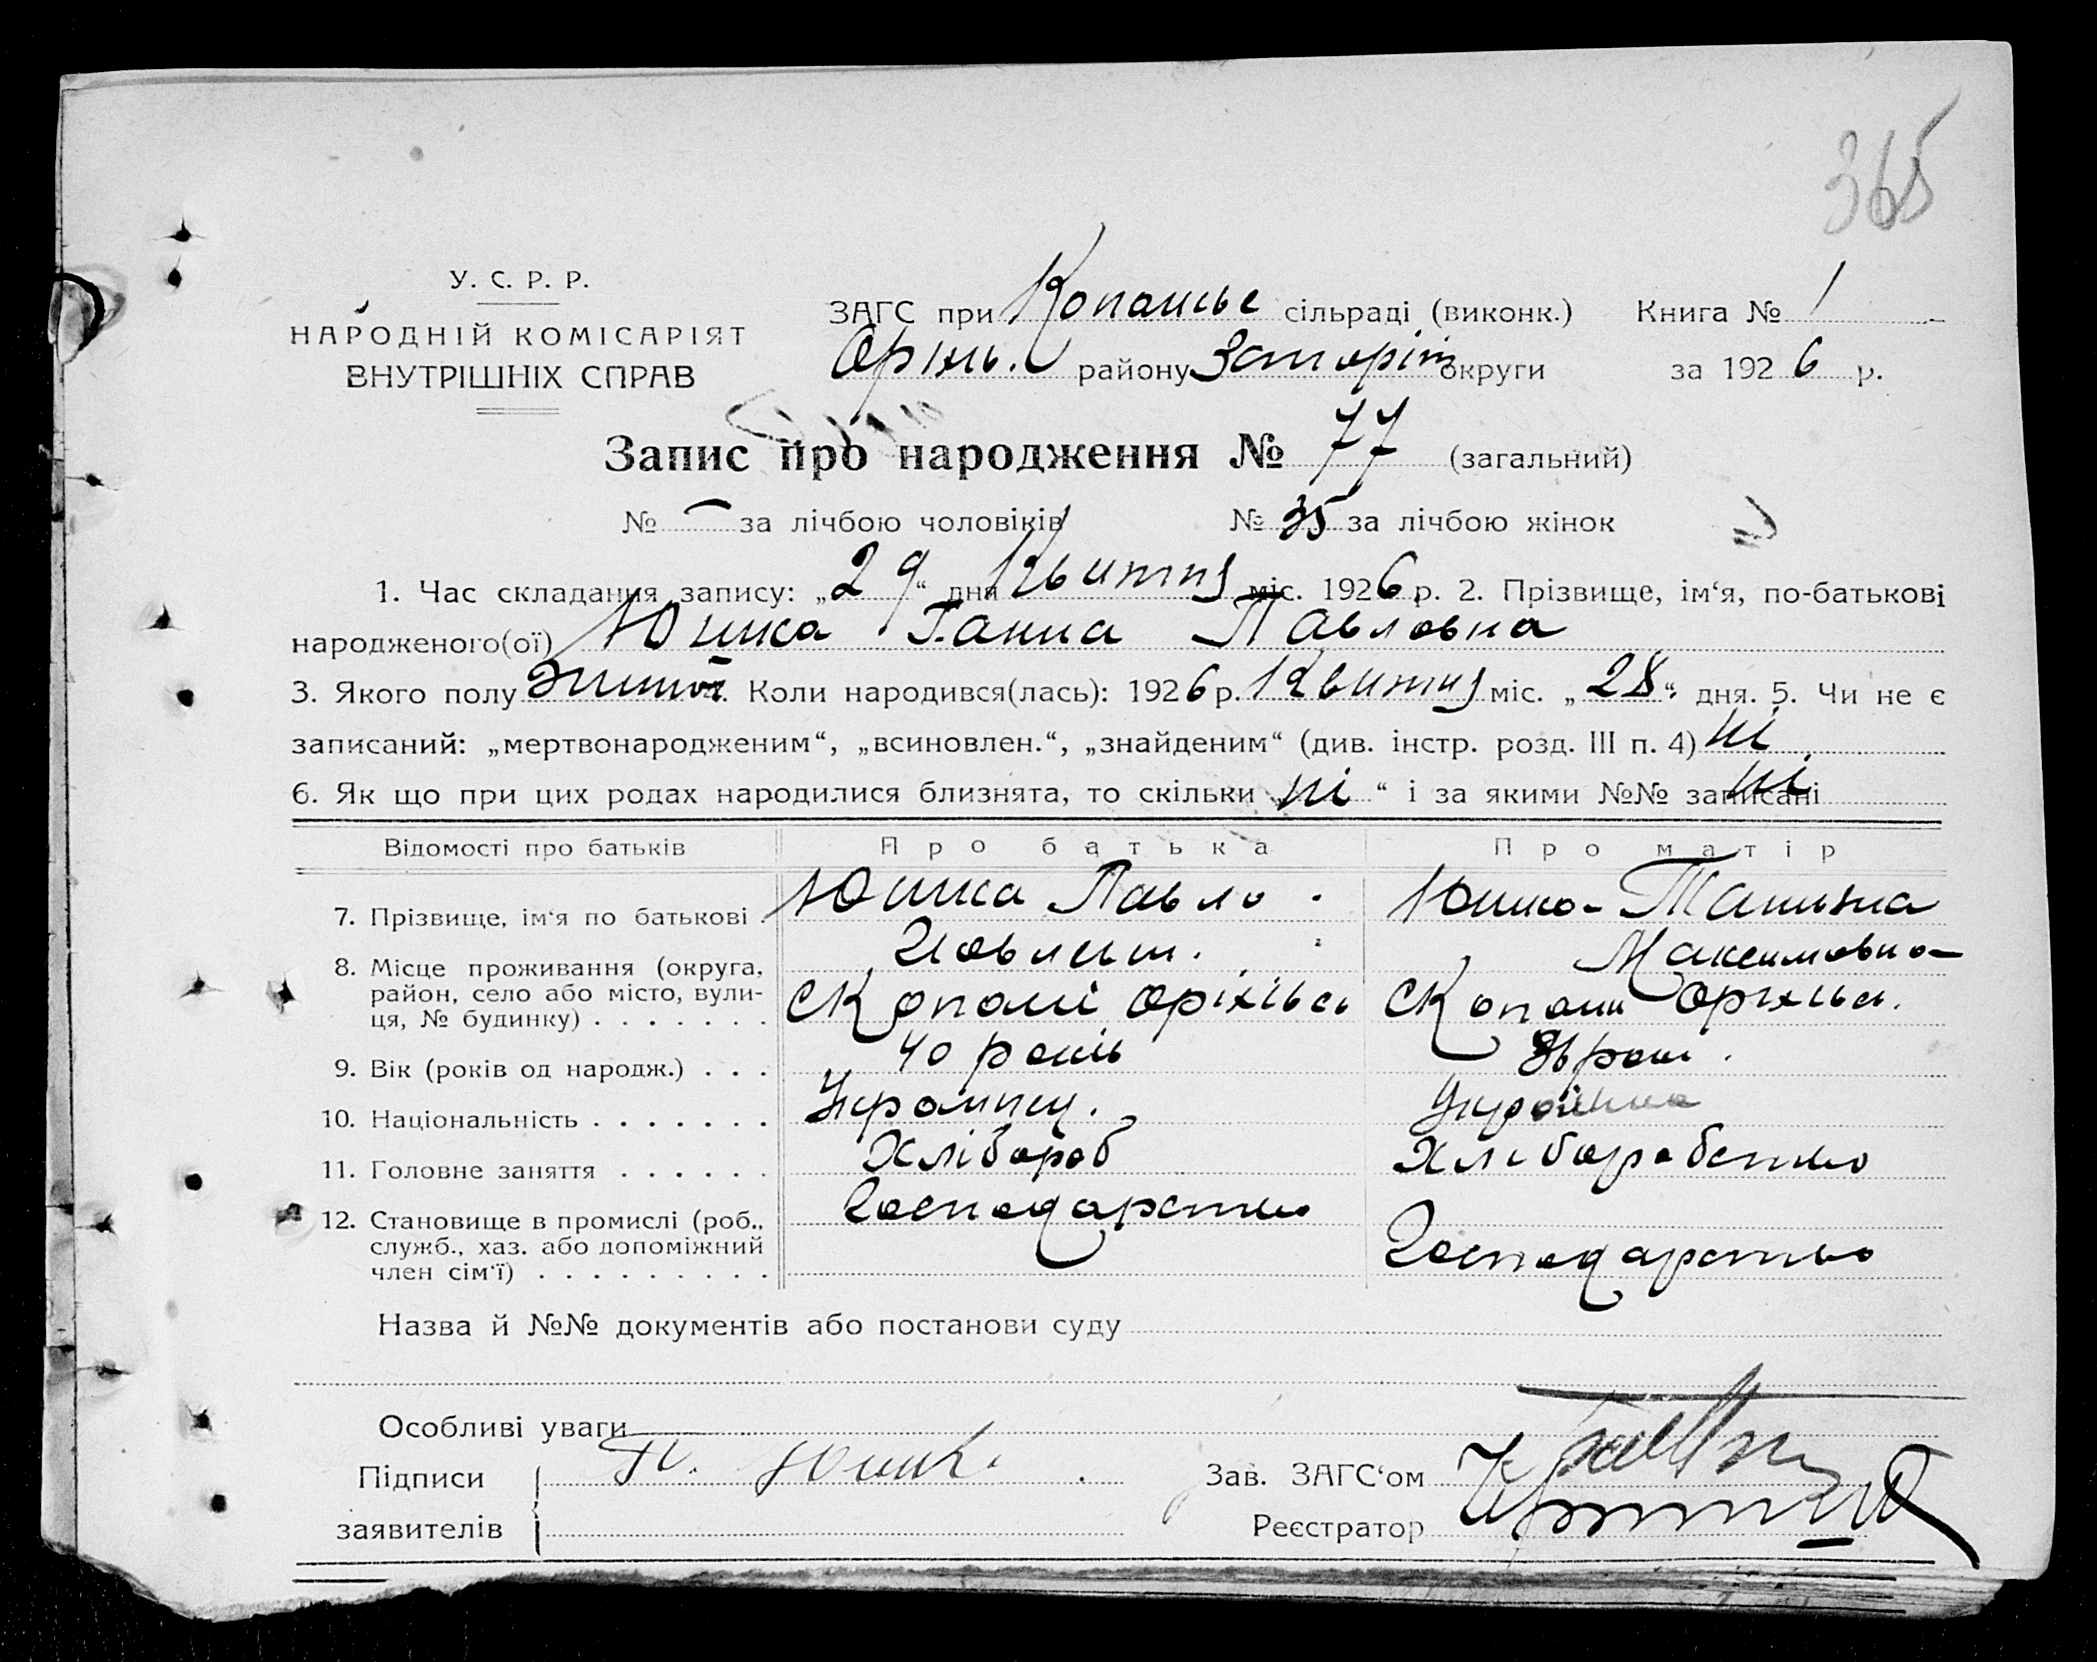 365
У. С. Р. Р.
НАРОДНІЙ КОМІСАРІЯТ
ВНУТРІШНІХ СПРАВ
ЗАГС при Копансье сільраді (виконк.) Книга № 1
Оріхів. району Запоріт округи за 1926 р.
Запис про народження № 77 (загальний)
№ — за лічбою чоловіків № 35 за лічбою жінок
1. Час складання запису: „29“ дня Квитня міс. 1926 р. 2. Прізвище, ім‘я, по-батькові
народженого(ої) Юшка Ганна Павловна
3. Якого полу Коли народився(лась): 1926 р. Квитня міс. „28“ дня. 5. Чи не є
записаний: „мертвонародженим“, „всиновлен.“, „знайденим“ (див. інстр. розд. III п. 4) ні
6. Як що при цих родах народилися близнята, то скільки „ні“ і за якими №№ записані ні
Відомості про батьків Про батька Про матір
7. Прізвище, ім‘я по батькові . Юшка Павло Юшко Татьяна
Максимовна
8. Місце проживання (округа, район, село або місто, вулиця, № будинку) . . . . . . . С Копані Оріхівсь С Копани Оріхівсь.
9. Вік (років од народж.) . . . 40 років 36 рош.
10. Національність . . . . . . . Україниц. Україинка
11. Головне заняття . . . . . . Хлібороб Хліборобство
12. Становище в промислі (роб., служб., хаз. або допоміжний член сім‘ї) . . . . . . . . . Господарство Господарство
Назва й №№ документів або постанови суду
Особливі уваги
Підписи П. Юшка Зав. ЗАГС‘ом
заявителів Реєстратор